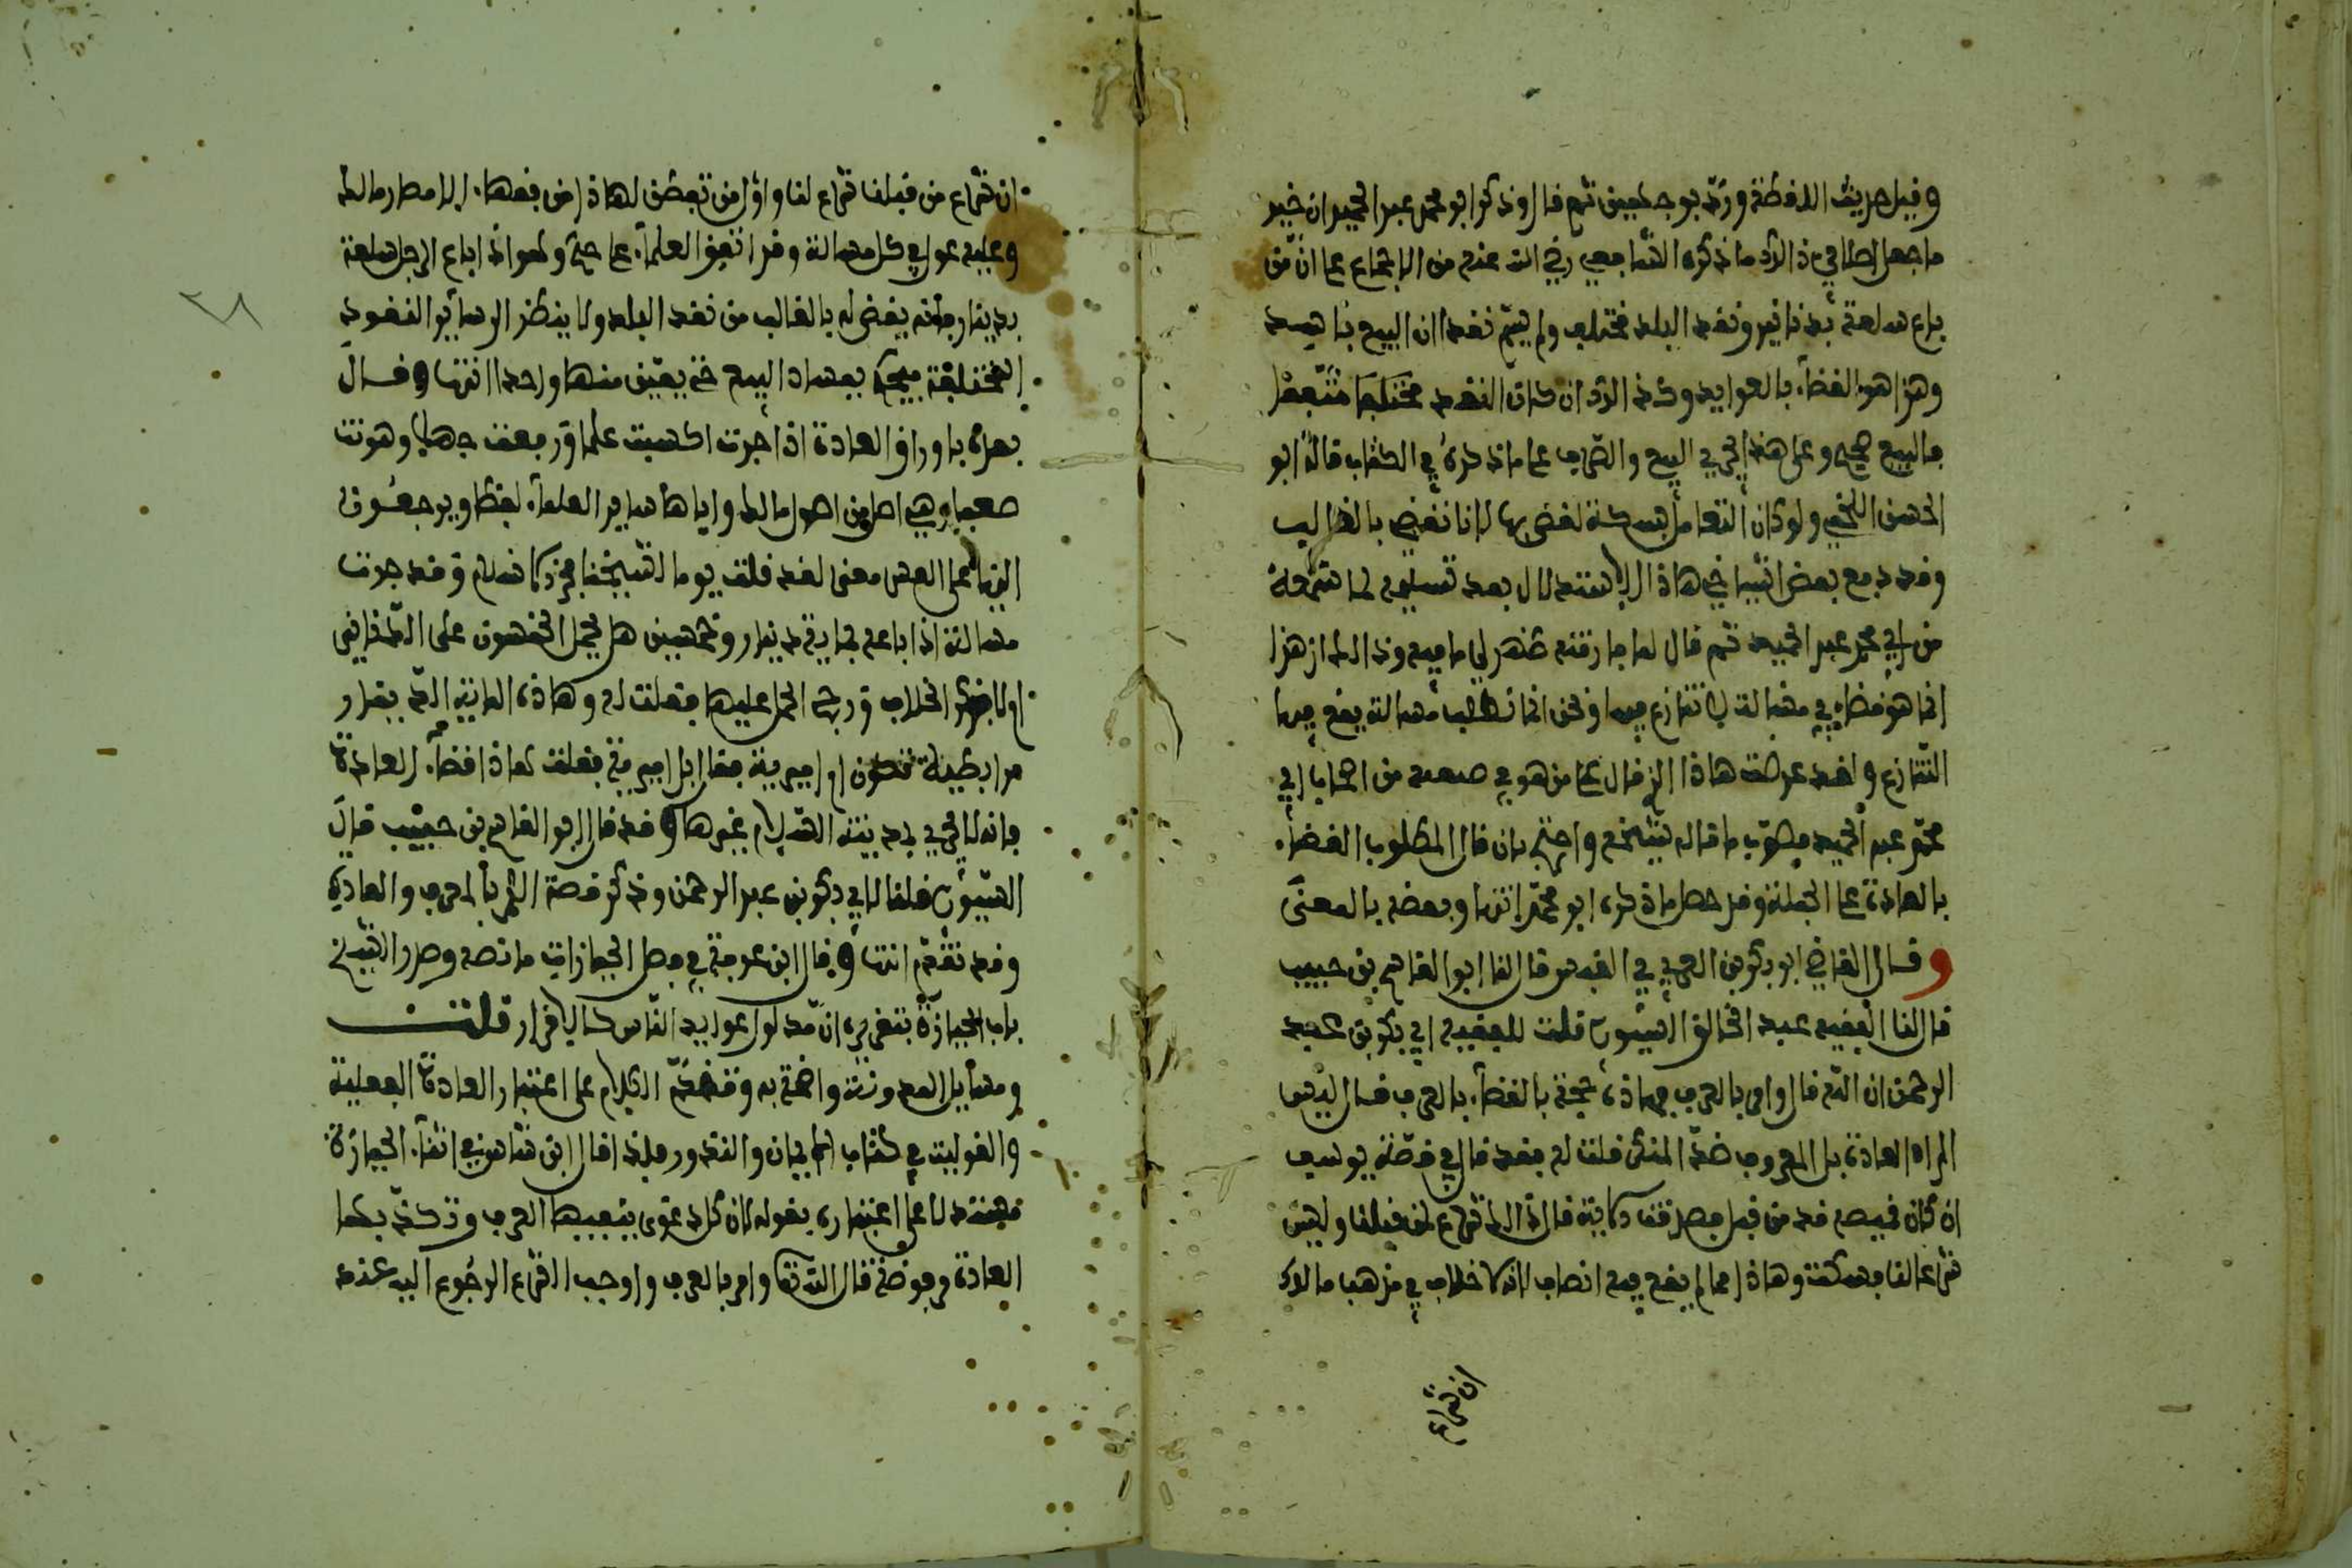 وقيل حريث اللافظة ورد بوجهين ثم قال وذكر ابو محمد عبد الحميد ان خير
ما جعل اصلا في ذ الرد ما ذكره الشافعي رضي الله عنه من الاجماع على ان من
باع سلعة بدنانير ونقد البلد مختلف ولم يسم نقدا ان البيع فاسد
وهذا هو القضاء بالعوايد وكذ الرد ان كان النقد مختلفا متفقا
فالبيع صحيح وعلى هذا يجري البيع والصرف على ما ذكره في الكتاب قال ابو
الحسن اللخمي ولو كان التعامل بسكة لقضى بها لانا نقضي بالغالب
وقد دفع بعض اشياخي هاذا الاستدلال بعد تسليمه لما شرحه
من ابي محمد عبد الحميد ثم قال لما فارقته ظهر لي ما فيه وذالك ان هذا
انما هو قضاء في مسالة لا تنازع فيها ونحن انما نطلب مسالة يقع فيها
التنازع ولقد عرضت هاذا الذي قال على من هو في صنعه من اصحاب ابي
محمد عبد الحميد فصوب ما قاله شيخه واحتج بان قال المطلوب القضاء
بالعادة على الجملة وقد حصل ما ذكره ابو محمد انتهى وبعضه بالمعنى
وقال القاضي ابو بكر بن العربي في القبس قال لنا ابو القاسم بن حبيب
قال لنا الفقيه عبد الخالق السيوري قلت للفقيه ابي بكر بن عبد
الرحمن ان الله قال وامر بالعرف فهاذه حجة بالقضاء بالعرف فقال ليس
المراد العادة بل المعروف ضد المنكر فقلت له فقد قال في قصة يوسف
ان كان قميصه قد من قبل فصدقت حكاية قال ذالك شرع لمن قبلنا وليس
شرعا لنا فسكت وهاذا مما لم يقع فيه انصاف لانه لا خلاف في مذهب مالك
ان شرع
ان شرع من قبلنا شرع لنا واول من تفطن لهاذا من فقهاء الامصار مالك
وعليه عول في كل مسالة وقد اتفق العلماء على صحته وهو اذا باع الرجل سلعة
بدينار فانه يقضى له بالغالب من نقد البلد ولا ينظر الى سائر النقود
المختلفة فيحكم بفساد البيع حتى يعين منها واحدا انتهى وقال
بعده باوراق العادة اذا جرت اكسبت علما ورفعت جهلا وهونت
صعبا وهي اصل من اصول مالك واياها ساير العلماء لفظا ويرجعون
اليها على العس معنى لقد قلت يوما لشيخنا فخر الاسلام وقد جرت
مسالة اذا باعه بماية دينار وخمسين هل يحمل الخمسون على الدنانير
او لا وذكر الخلاف ورجح الحمل عليها فقلت له وهاذه الماية التي بقدار
مرابطية تكون او اميرية فقال بل اميرية فقلت هاذا قضاء العادة
فانه لا يجري بمدينة السلام غيرها وقد قال ابو القاسم بن حبيب قال
السيوري قلنا لابي بكر بن عبد الرحمن وذكر قصة الامر بالعرف والعادة
وقد تقدم انتهى وقال ابن عرفة في فصل الحيازات ما نصه وصرح الشيخ
باب الحيازة بتقرير ان مدلول عوايد الناس كالاقرار قلت
ومسايل المدونة واضحة به وتقدم الكلام على اعتبار العادة الفعلية
والقولية في كتاب الايمان والنذور ولذا قال ابن شاس في اثناء الحيازة
مستدلا على اعتباره بقوله لان كل دعوى ينفيها العرف وتكذبها
العادة مرفوضة قال الله تعالى وامر بالعرف واوجب الشرع الرجوع اليه عند
٣٨